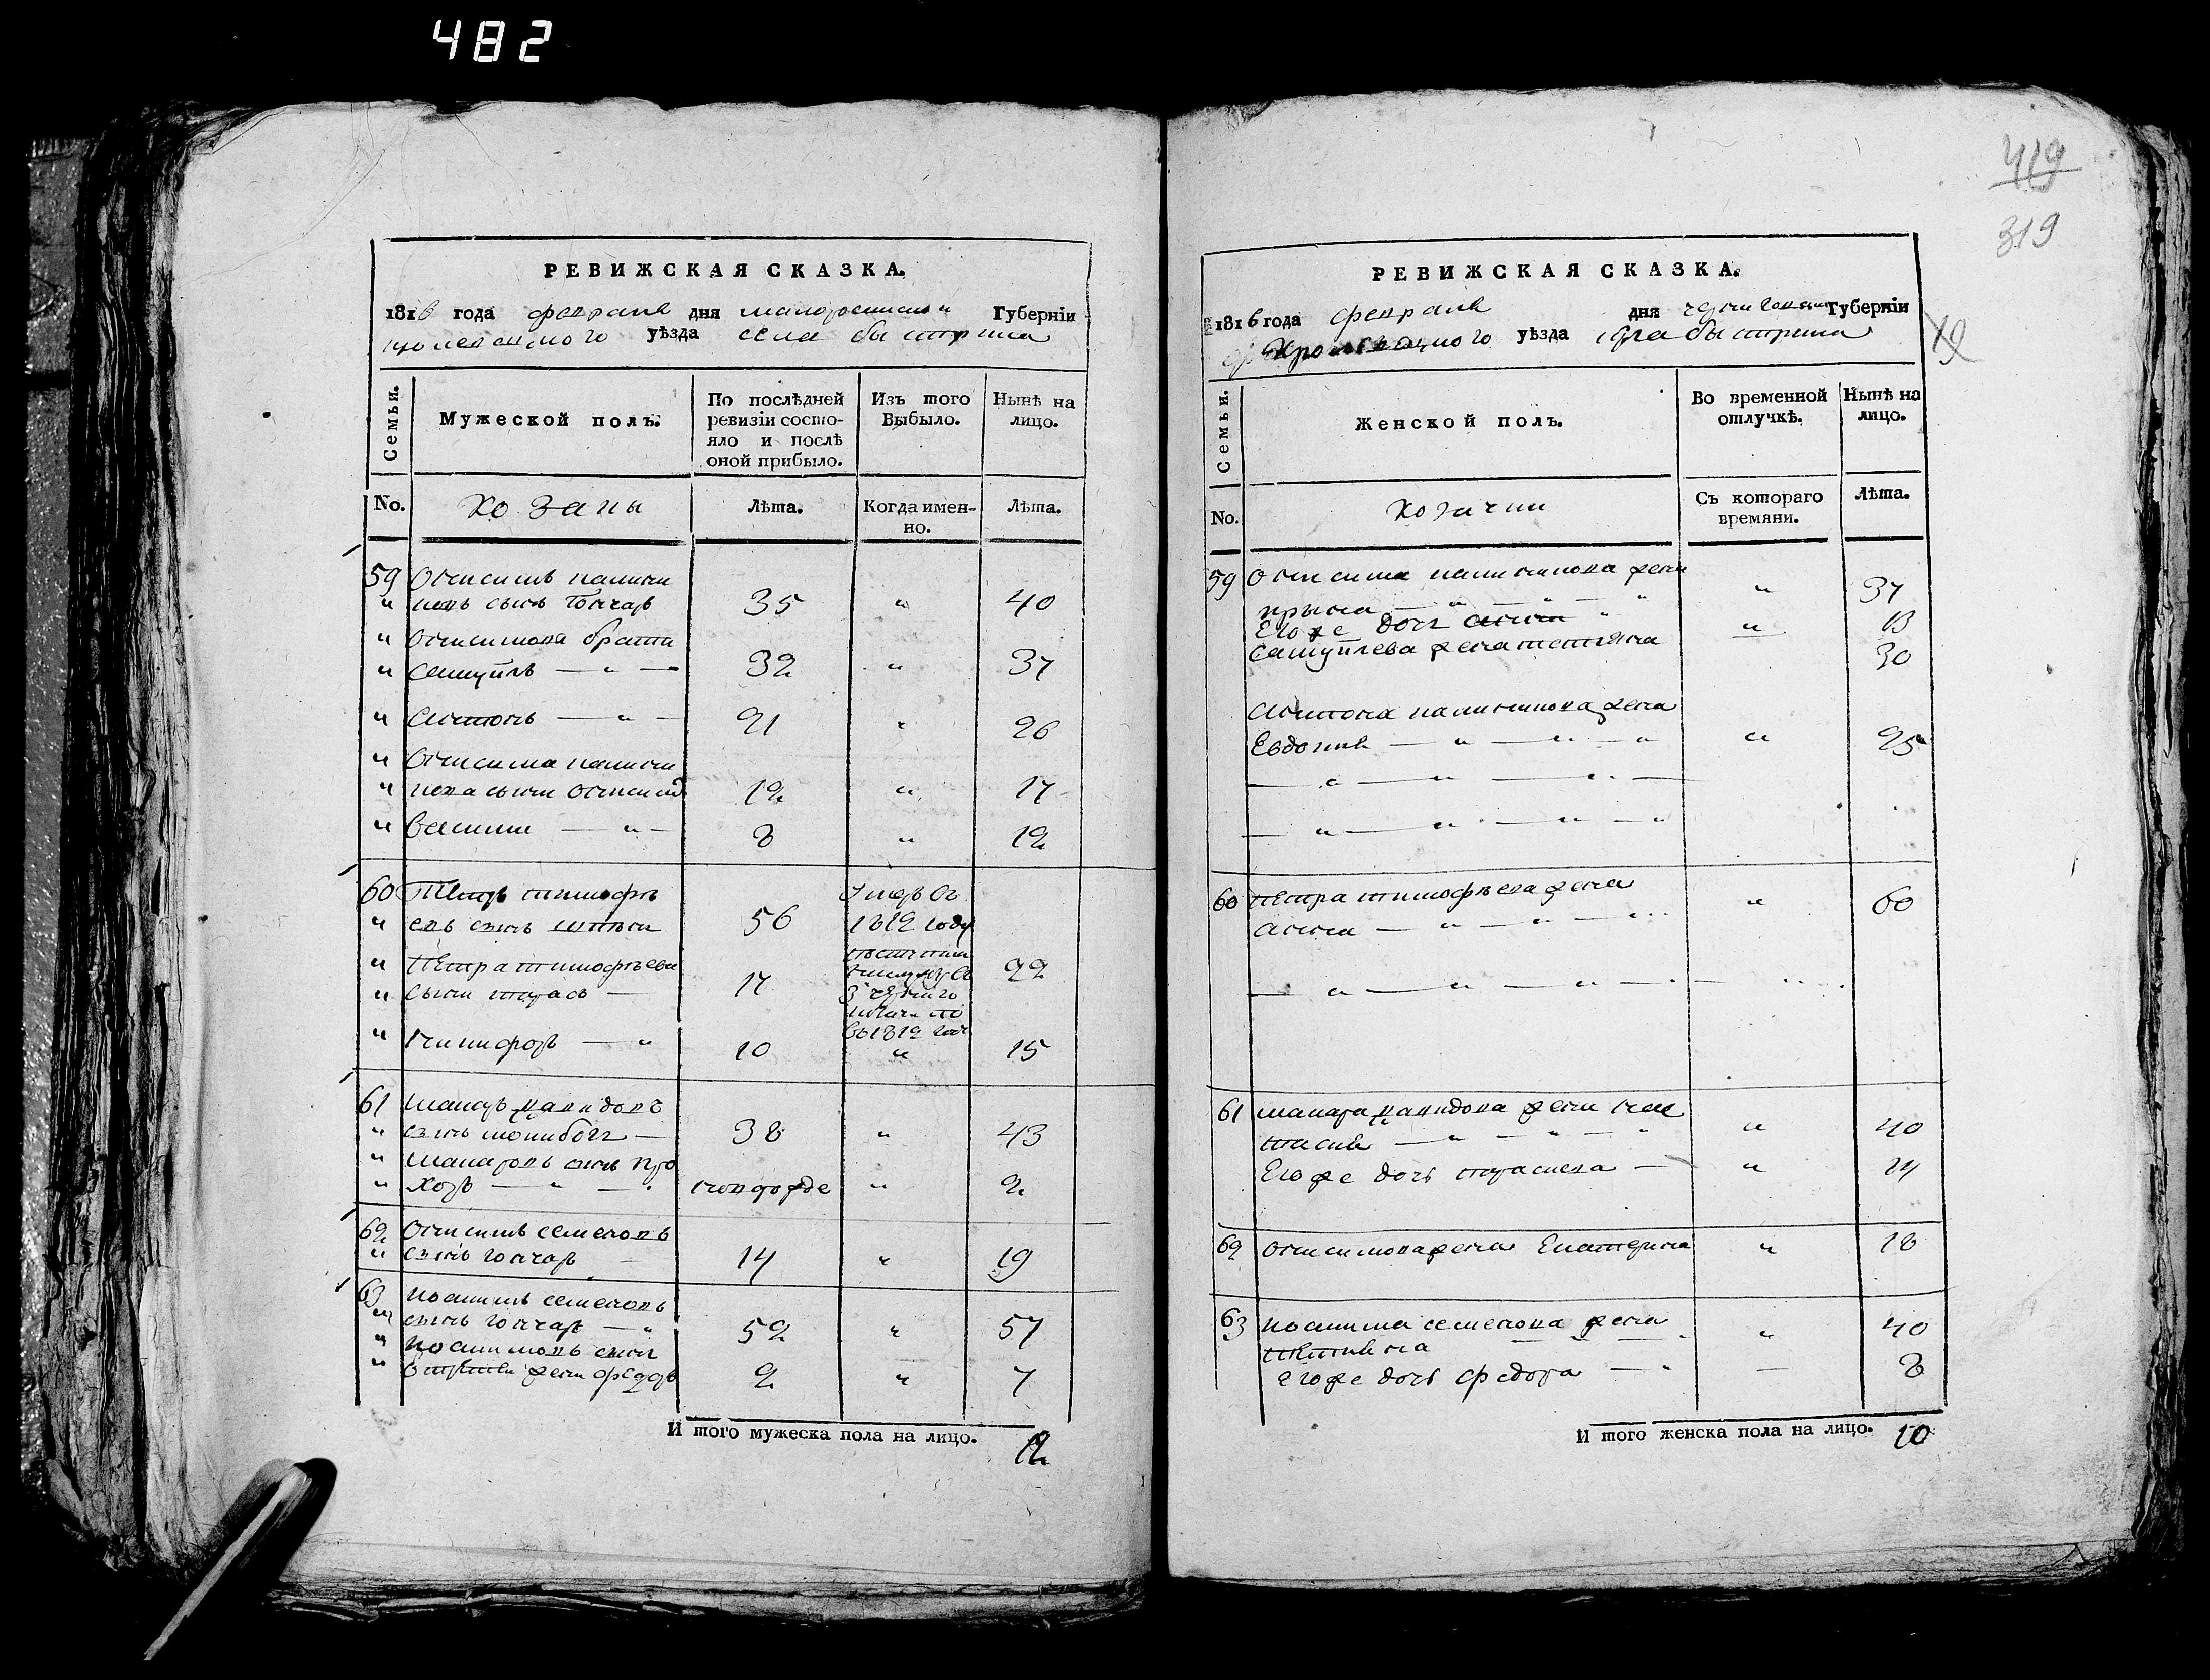 482
РЕВИЖСКАЯ СКАЗКА.
1816 года февраля дня малоросииской Губерніи
кролевецкого уѣзда села быстрика
Семьи.
Мужеской полъ.
По послѣдней ревизіи состо-
яло и послѣ
оной прибыло.
Изъ того
Выбыло.
Нынѣ на
лицо.
No.
Козаки
Лѣта.
Когда имен-
но.
Лѣта.
59 Онисимъ калени
ковъ сынъ Гончаръ 35 " 40
Онисимова брати
Самуйлъ — " — 32 " 37
Антонъ — " — 21 " 26
Онисима калени
кова сыни Онисимъ 12 " 17
Василии — " — 8 " 12
60 Петръ тимофѣ
евъ сынъ 56 Умеръ въ
1812 году
Петра тимофѣева
сыни тарасъ — 17 22
въ 1812 году
Никифоръ — " 10 " 15
61 Макаръ давидовъ
сынъ 38 " 43
Макаровъ сынъ про
хоръ — " — новорожде " 2
62 Онисимъ семеновъ
сынъ гончаръ 14 " 19
63 иоакимъ семеновъ
сынъ гончаръ — " 52 " 57
иоакимовъ сынъ
жени федоръ 2 " 7
И того мужеска пола на лицо. 12
419
319
РЕВИЖСКАЯ СКАЗКА.
1816 года февраля дня чернигов Губерніи
Кролевецкого уѣзда села быстрика
19
Семьи.
Женской полъ.
Во временной
отлучкѣ.
Нынѣ на
лицо.
No.
Козачки
Съ котораго
времяни.
Лѣта.
59 Онисима каленикова жена
ирына — " — " — " " 37
Его же дочь " 13
Самуйлева жена тетяна 30
Антона каленикова жена
Евдокия — " — " — " " 25
60 Петра тимофѣева жена
Анна — " — " — " " 60
61 макара давидова жена нас
тасия — " — " — " " 40
Его же дочь — " 14
62 онисимова жена Екатерина " 18
63 иоакима семенова жена " 40
его же дочь федора — " — 8
И того женска пола на лицо. 10